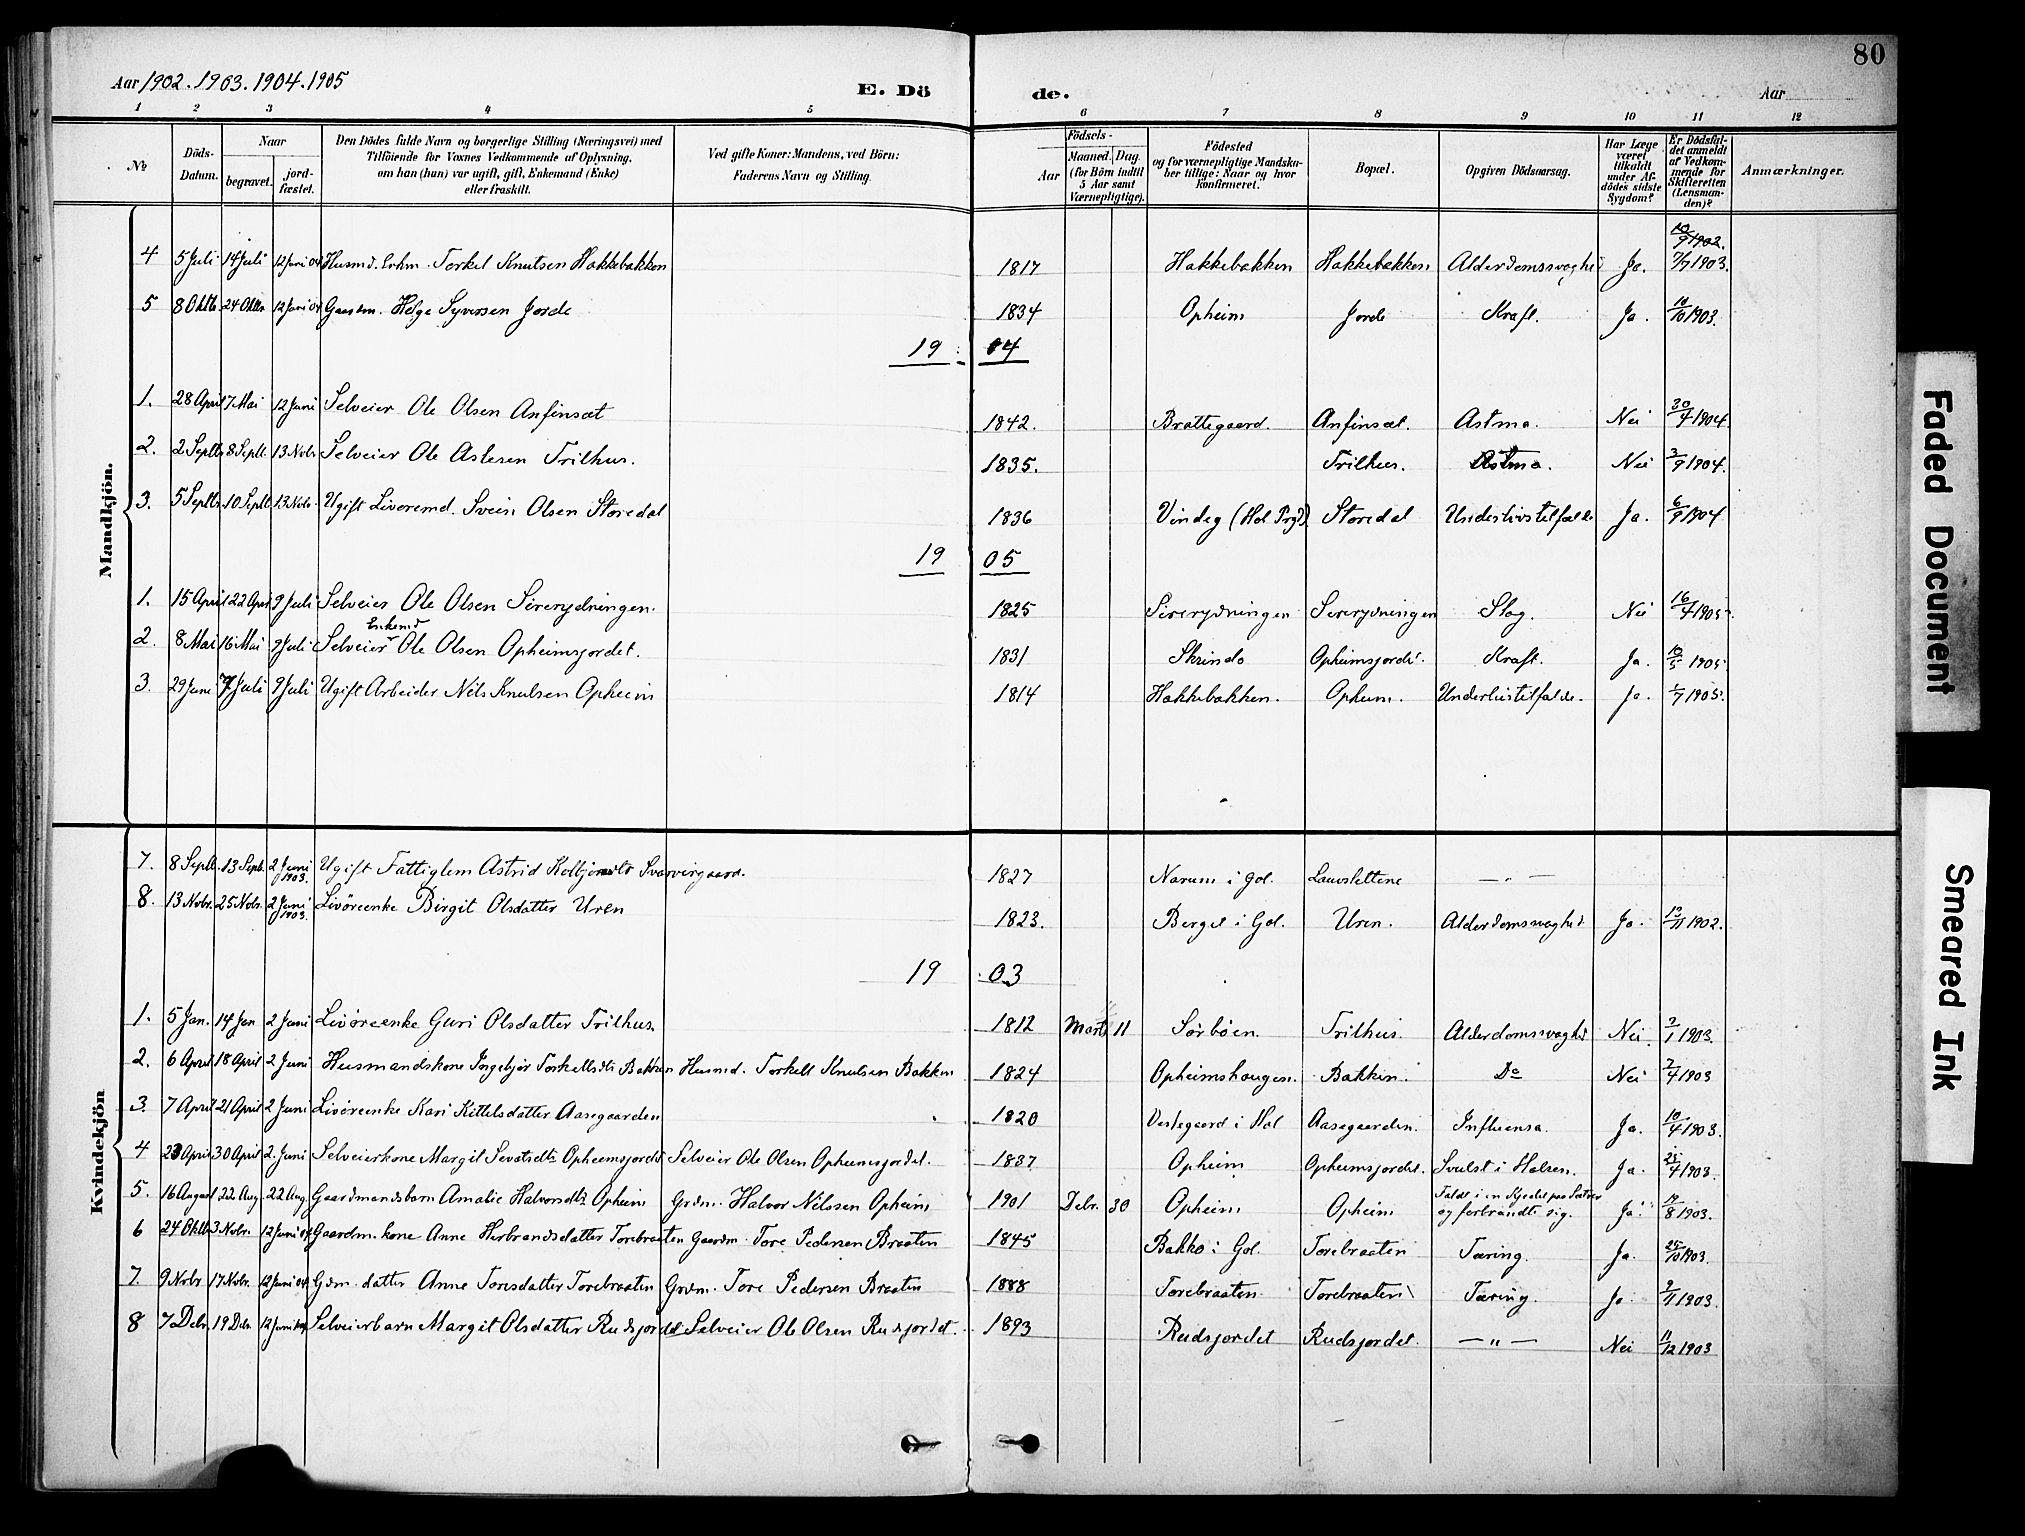 80
Aar 1902. 1903. 1904. 1905
E. Döde.
Aar
1 2 3 4 5 6 7 8 9 10 11 12
№
Döds-Datum.
Naar
begravet.
jord-fæstet.
Den Dödes fulde Navn og borgerlige Stilling (Næringsvei) med
Tilföiende for Voxnes Vedkommende af Oplysning,
om han (hun) var ugift, gift, Enkemand (Enke)
eller fraskilt.
Ved gifte Koner: Mandens, ved Börn:
Faderens Navn og Stilling.
Födsels-
Aar
Maaned. Dag.
(for Börn indtil
5 Aar samt
Værnepligtige).
Födested
og for værnepligtige Mandska-
ber tillige: Naar og hvor
konfirmeret.
Bopæl.
Opgiven Dödsaarsag.
Har Læge
været
tilkaldt
under Af-
dödes sidste
Sygdom?
Er Dödsfal-
det anmeldt
af Vedkom-
mende for
Skifteretten
(Lensman-
den)?
Anmærkninger.
Mandkjön.
4 5 Juli 14 Juli 12 Juni 04 Husmd. Torkel Knutsen Hakkebakken 1817 Hakkebakken Hakkebakken Alderdomssvaghed Ja. 7/7 1903.
5 8 Oktb. 24 Oktbr 12 Juni 04 Gaardm. Helge Syversen Jorde 1834 Opheim Jorde Kræft. Ja. 10/10 1903.
19 04
1. 28 April 7 Mai 12 Juni Selveier Ole Olsen Anfinsæt 1842. Brattegaard. Anfinsæt. Astma. Nei 30/4 1904
2. 2 Septb. 8 Septb. 13 Nobr. Selveier Ole Aslesen Trilhus. 1835. Trilhus. Astma. Nei 3/9 1904.
3. 5 Septb. 10 Septb 13 Nobr. Ugift Livøremd. Svein Olsen Støredal 1836 Vindeg (Hol Prgj) Støredal Underlivstilfælde Ja. 6/9 1904
19 05
1. 15 April 22 April 9 Juli Selveier Ole Olsen Sirerydningen. 1825 Sirerydningen Sirerydningen Slag. Nei 16/4 1905.
2. 8 Mai 16 Mai 9 Juli Selveier Enkemd Ole Olsen Opheimsjordet. 1831 Skrindo Opheimsjordet. Kræft. Ja. 10/5 1905
3. 29 Juni 7 Juli 9 Juli Ugift Arbeider Nils Knutsen Opheim 1814 Hakkebakken. Opheim. Underlivstilfælde. Ja. 1/7 1905.
Kvindekjön
7. 8 Septb. 13 Septb. 2 Juni 1903. Ugift Fattiglem Astrid Kolbjørnsdtr Svarvirgaard. 1827 Narum i Gol. Lauvslettene — " —
8. 13 Nobr. 25 Nobr. 2 Juni 1903. Livøreenke Birgit Olsdatter Uren 1823. Berget i Gol. Uren. Alderdomssvaghed Ja. 13/11 1902.
19 03
1. 5 Jan. 14 Jan 2 Juni Livøreenke Guri Olsdatter Trilhus. 1812 Marts 11 Sørbøen. Trilhus. Alderdomssvaghed Nei. 7/1 1903.
2. 6 April 18 April 2 Juni Husmandskone Ingebjør Torkelsdtr Bakken Husmd. Torkell Knutsen Bakken 1824 Opheimshaugen. Bakken. Do Nei 7/4 1903
3. 7 April 21 April 2 Juni Livøreenke Kari Kittelsdatter Aasegaarden 1820 Vestegaard i Hol Aasegaarden. Influensa. Ja. 10/4 1903.
4 23 April 30 April 2. Juni Selveierkone Margit Sevatsdtr Opheimsjordet Selveier Ole Olsen Opheimsjordet. 1837 Opheim Opheimsjordet. Svulst i Halsen. Ja. 21/4 1903.
5. 16 August 22 Aug. 22 Aug. Gaardmandsbarn Amalie Halvorsdtr Opheim Grdm. Halvor Nilssen Opheim 1901 Debr. 30 Opheim Opheim Faldt i en Kjedel paa Sæter og forbrændte sig. Ja. 17/8 1903.
6 24 Oktb. 3 Nobr. 12 Juni 04 Gaardm. kone Anne Herbrandsdatter Torebraaten Gaardm. Tore Pedersen Braaten 1845 Bakko i Gol. Torebraaten Tæring. Ja. 25/10 1903.
7. 9 Nobr 17 Nobr. 12 Juni 04 Grdm. datter Anne Toresdatter Torebraaten Grdm. Tore Pedersen Braaten 1888 Torebraaten. Torebraaten Tæring. Ja 9/11 1903.
8 7 Debr. 19 Debr. 12 Juni 04 Selveierbarn Margit Olsdatter Rudsjordet Selveier Ole Olsen Rudsjordet. 1893 Rudsjordet Rudsjordet. — " — Nei 11/12 1903
Faded Document
Smeared Ink